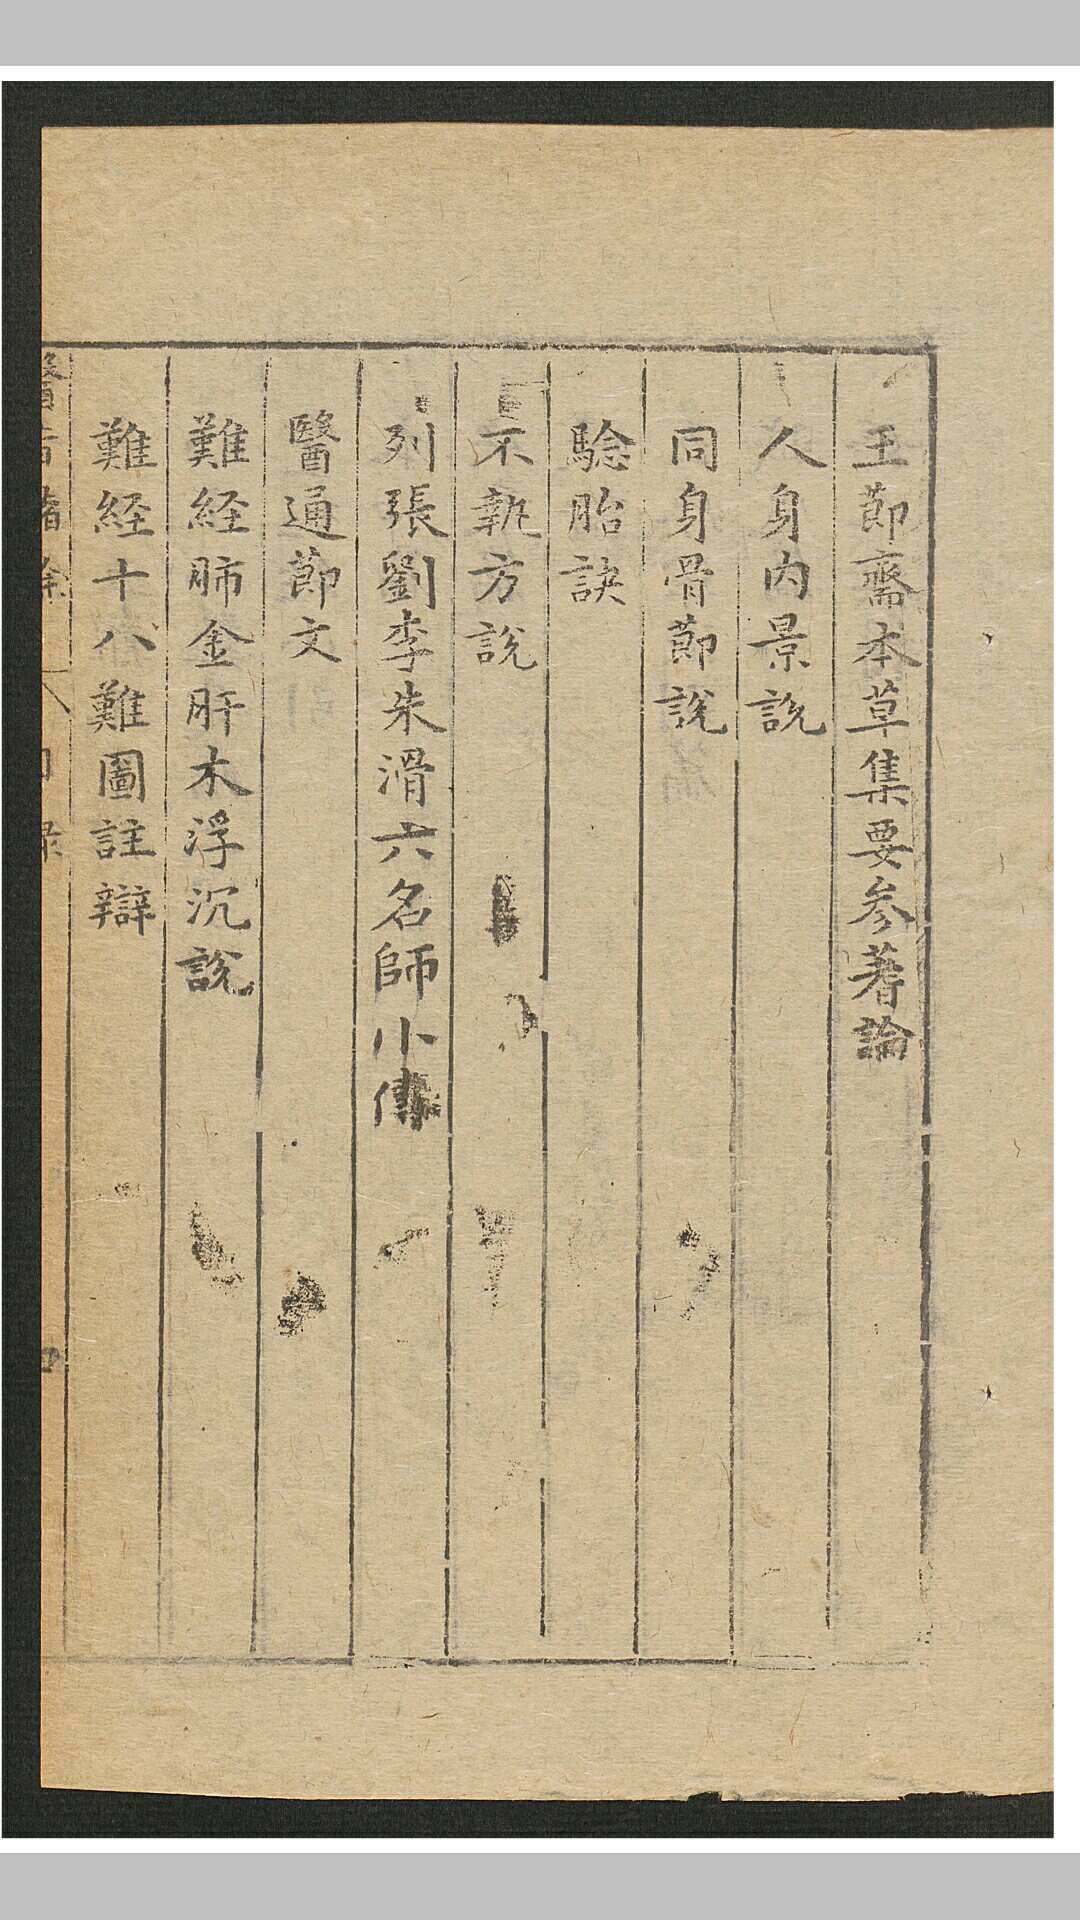 王節齋本草集要参蓍論
人身內景說
同身骨節說
騐胎訣
不執方說
列張劉李朱滑六名師小傳
醫通節文
難経肺金肝木浮沉說
難経十八難圖註辯